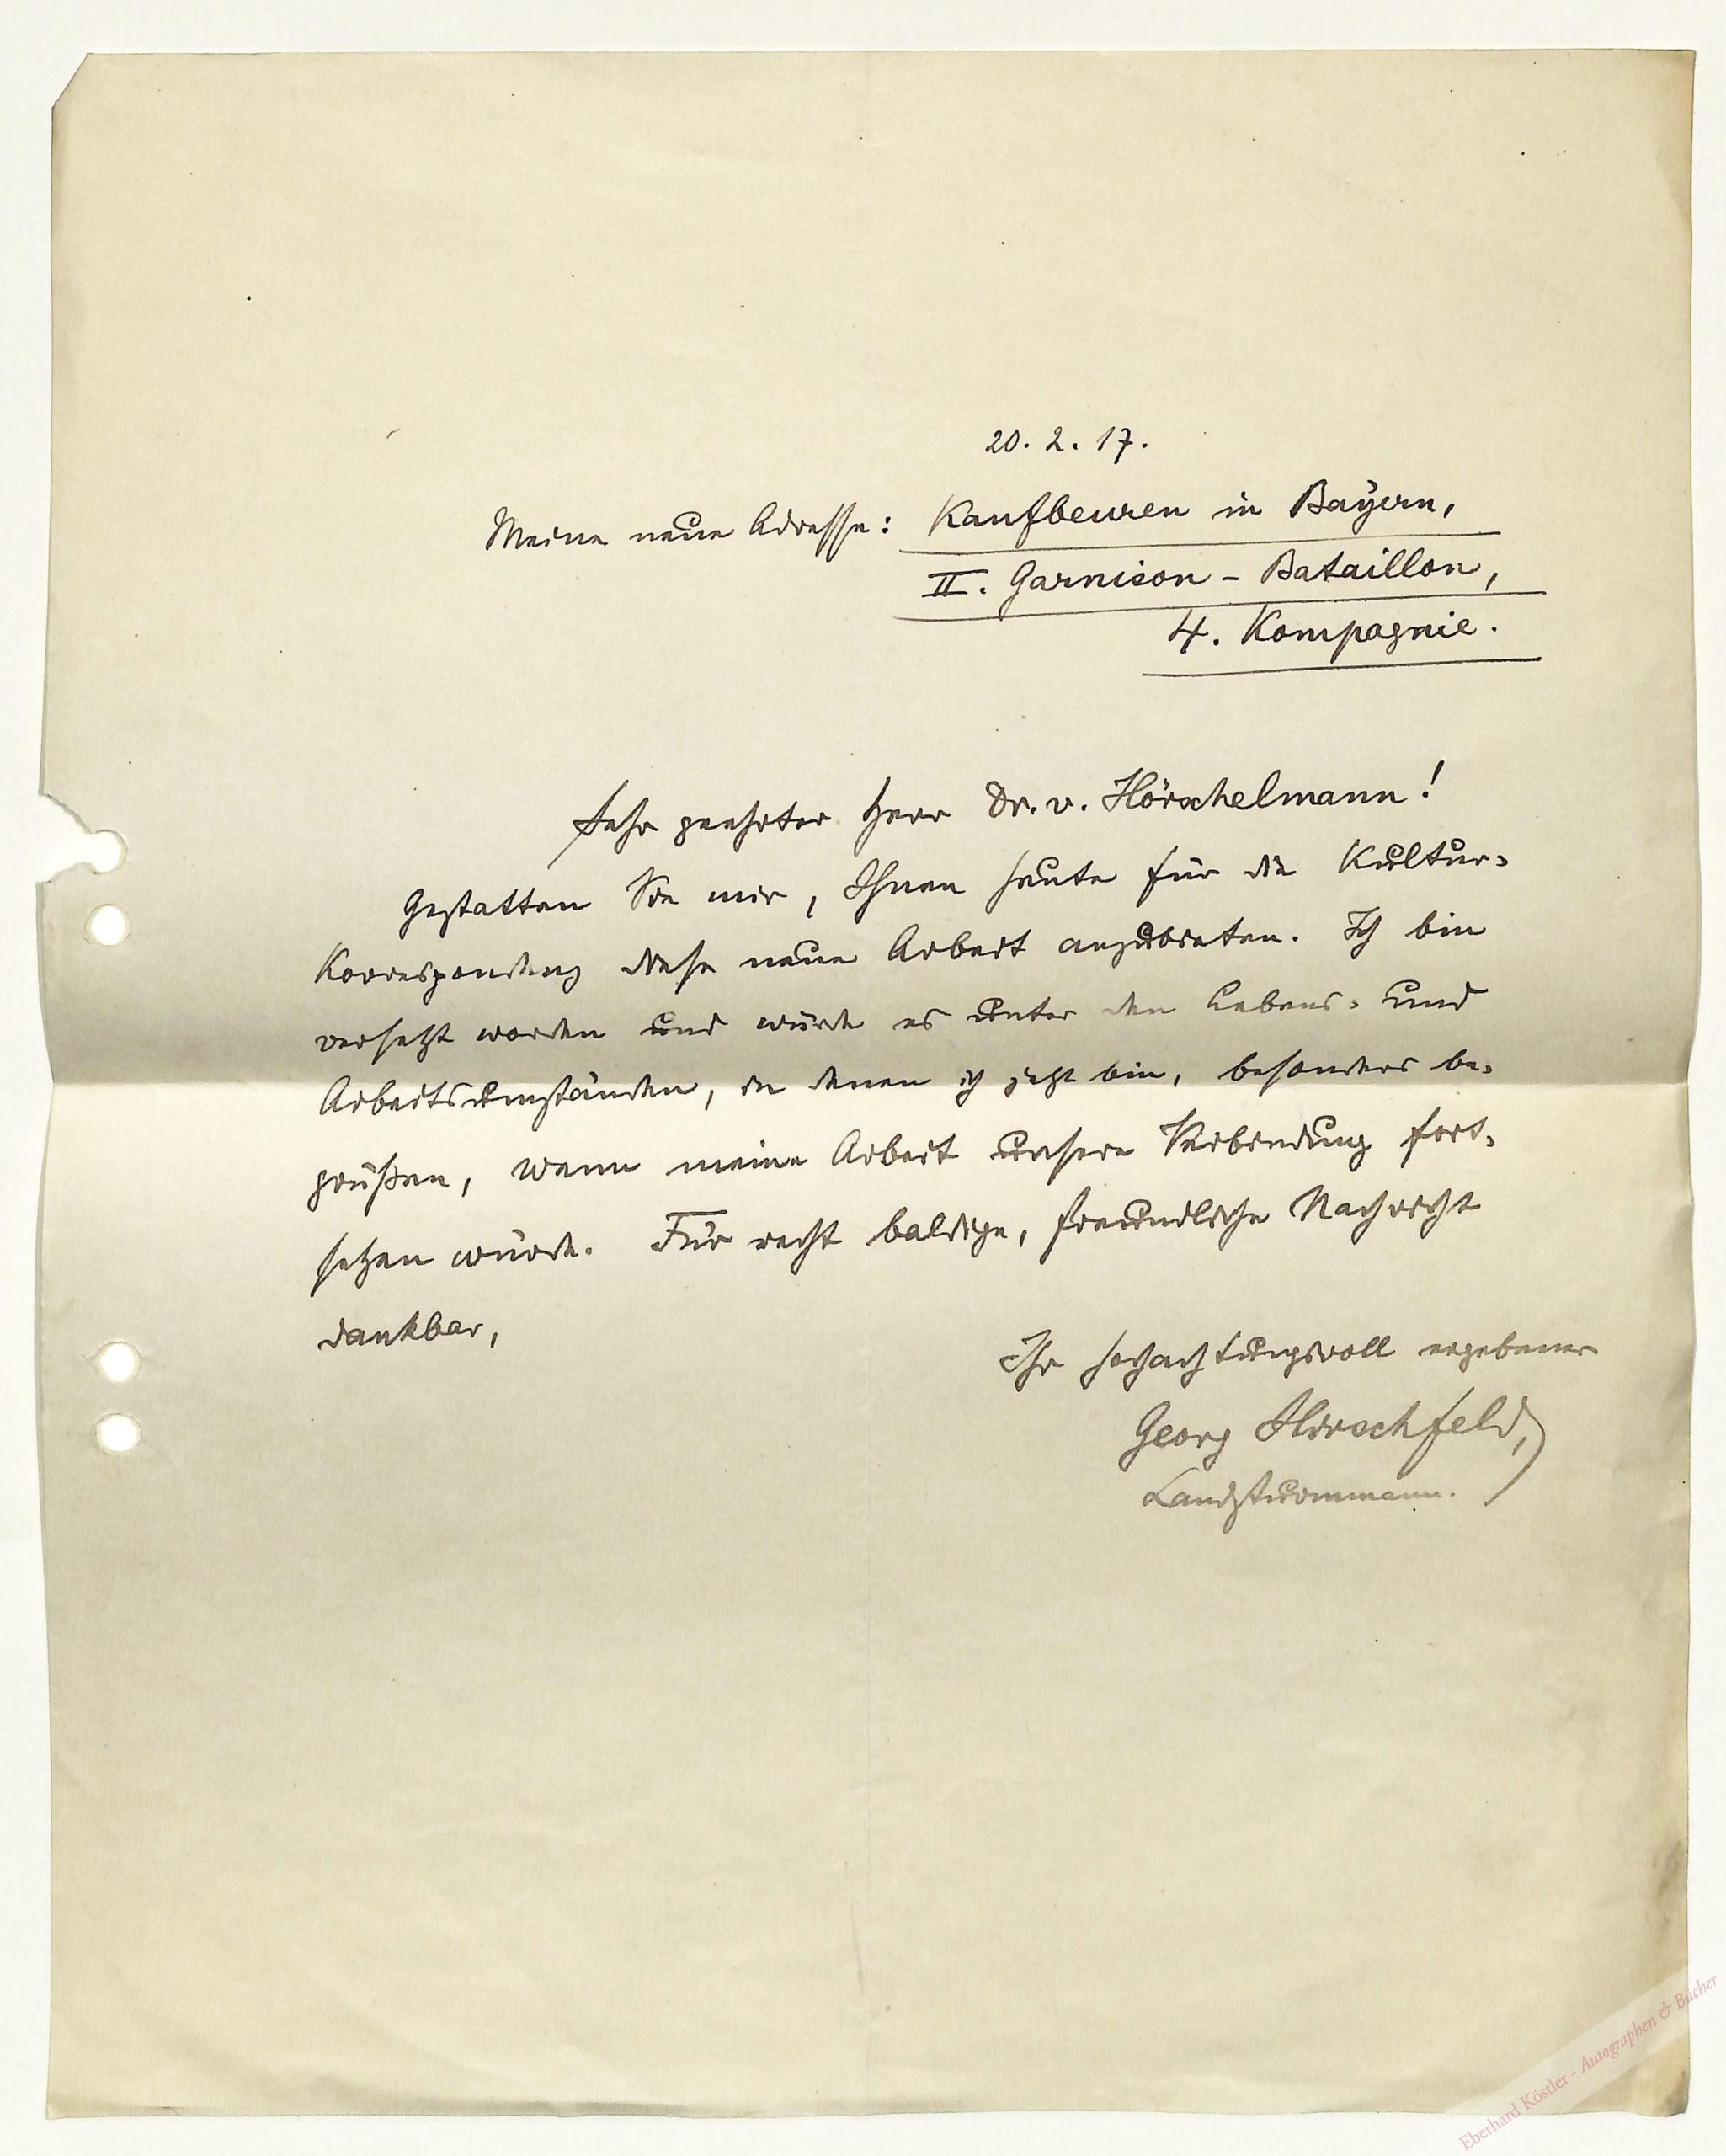 20. 2. 17.
Meine neue Adresse: Kaufbeuren in Bayern,
II. Garnison - Bataillon,
4. Kompagnie.
Sehr geehrter Herr Dr. v. Hörschelmann!
Gestatten Sie mir, Ihnen heute für die Kultur-
Korrespondenz diese neue Arbeit anzubieten. Ich bin
versetzt worden und würde es unter den Lebens- und
Arbeitsumständen, in denen ich jetzt bin, besonders be-
grüßen, wenn meine Arbeit unsere Verbindung fort-
setzen würde. Für recht baldige, freundliche Nachricht
dankbar,
Ihr hochachtungsvoll ergebener
Georg Hirschfeld,
Landsturmmann.
Eberhard Köstler - Autographen & Bücher